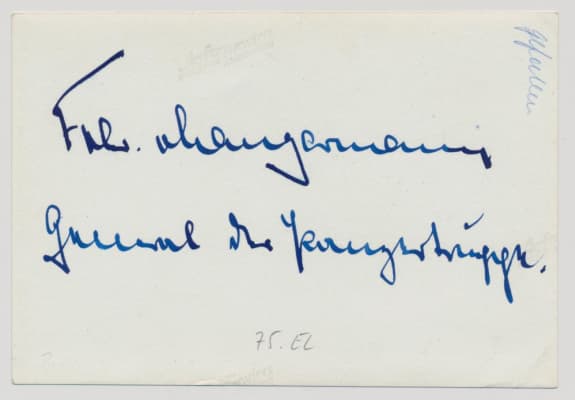 gefallen
Frhr. v Langermann
General der Panzertruppe.
75. EL